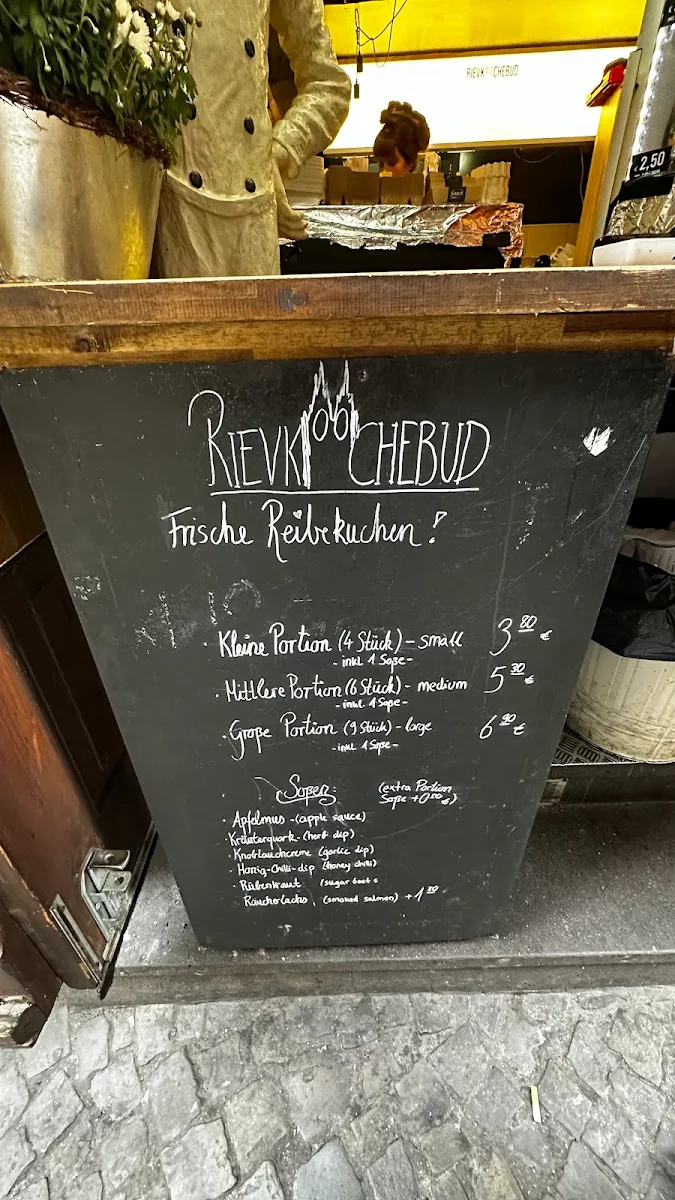 RIEVKOOCHEBUD
2,50
RIEVKOOCHEBUD
Frische Reibekuchen!
· Kleine Portion (4 Stück) - small 3 80 €
- inkl. 1 Soße -
· Mittlere Portion (6 Stück) - medium 5 30 €
- inkl. 1 Soße -
· Große Portion (9 Stück) - large 6 90 €
- inkl. 1 Soße -
Soßen: (extra Portion
Soße + 0 50 €)
· Apfelmus - (apple sauce)
· Kräuterquark - (herb dip)
· Knoblauchcreme (garlic dip)
· Honig-Chilli-dip (honey chilli)
· Rübenkraut (sugar beet s
· Räucherlachs (smoked salmon) +1